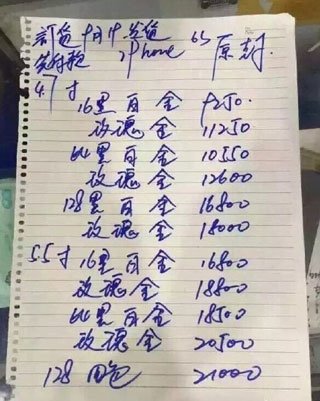 订货 9月19发货 6S 原封.
全付款 iphone
4.7寸
16黑白金 9250.
玫瑰金 11250
64黑白金 10550
玫瑰金 12600
128黑白金 16800
玫瑰金 18000
5.5寸 16黑白金 16800
玫瑰金 18800
64黑白金 18500
玫瑰金 20500
128 四色 21000